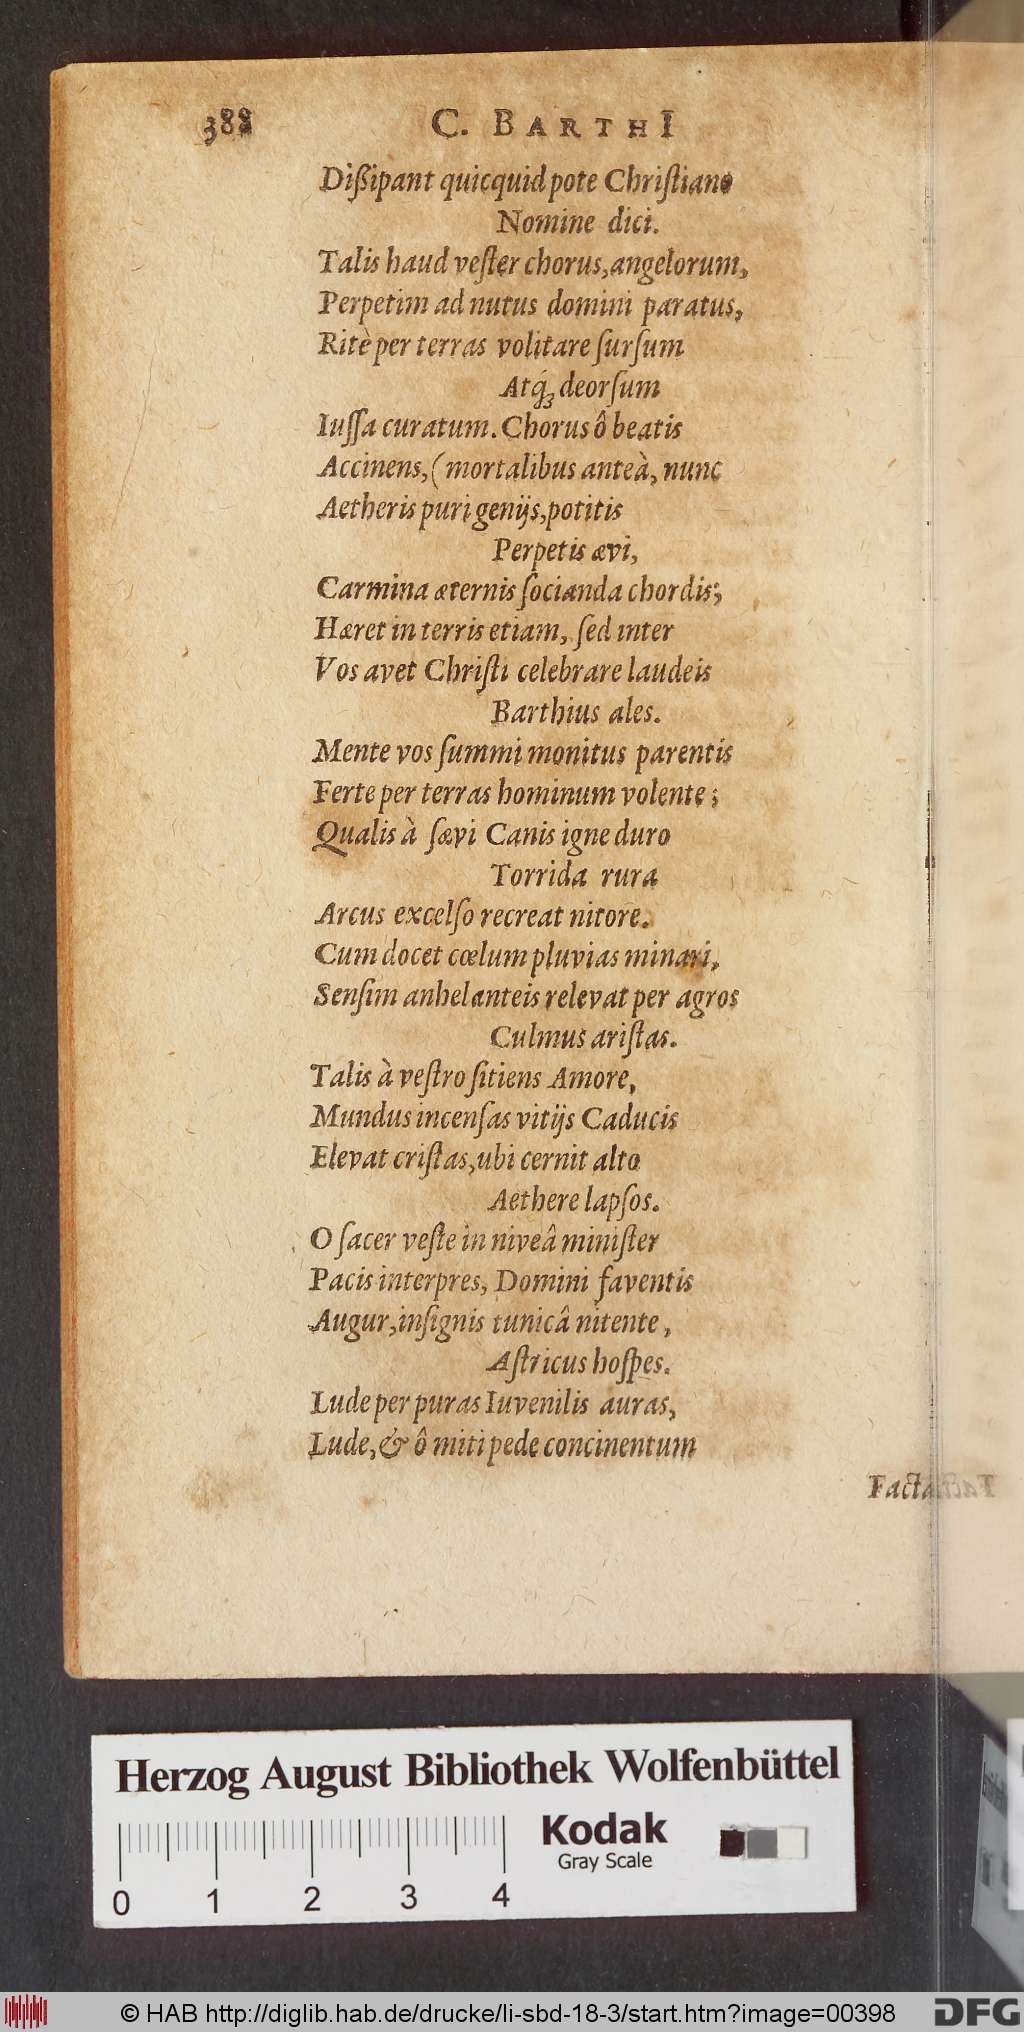 388
C. BARTHI
Dißipant quicquid pote Chriſtiano
Nomine dici.
Talis haud veſter chorus, angelorum,
Perpetim ad nutus domini paratus,
Ritè per terras volitare ſurſum
Atq́ꝫ deorſum
Iuſſa curatum. Chorus ô beatis
Accinens, (mortalibus anteà, nunc
Aetheris puri genijs, potitis
Perpetis ævi,
Carmina æternis ſocianda chordis;
Hæret in terris etiam, ſed inter
Vos avet Chriſti celebrare laudeis
Barthius ales.
Mente vos ſummi monitus parentis
Ferte per terras hominum volente;
Qualis à ſævi Canis igne duro
Torrida rura
Arcus excelſo recreat nitore.
Cum docet cœlum pluvias minari,
Senſim anhelanteis relevat per agros
Culmus ariſtas.
Talis à veſtro ſitiens Amore,
Mundus incenſas vitijs Caducis
Elevat criſtas, ubi cernit alto
Aethere lapſos.
O ſacer veſte in niveâ miniſter
Pacis interpres, Domini faventis
Augur, inſignis tunicâ nitente,
Aſtricus hoſpes.
Lude per puras Iuvenilis auras,
Lude, & ô miti pede concinentum
Facta
Herzog August Bibliothek Wolfenbüttel
Kodak
Gray Scale
0 1 2 3 4
© HAB http://diglib.hab.de/drucke/li-sbd-18-3/start.htm?image=00398
DFG